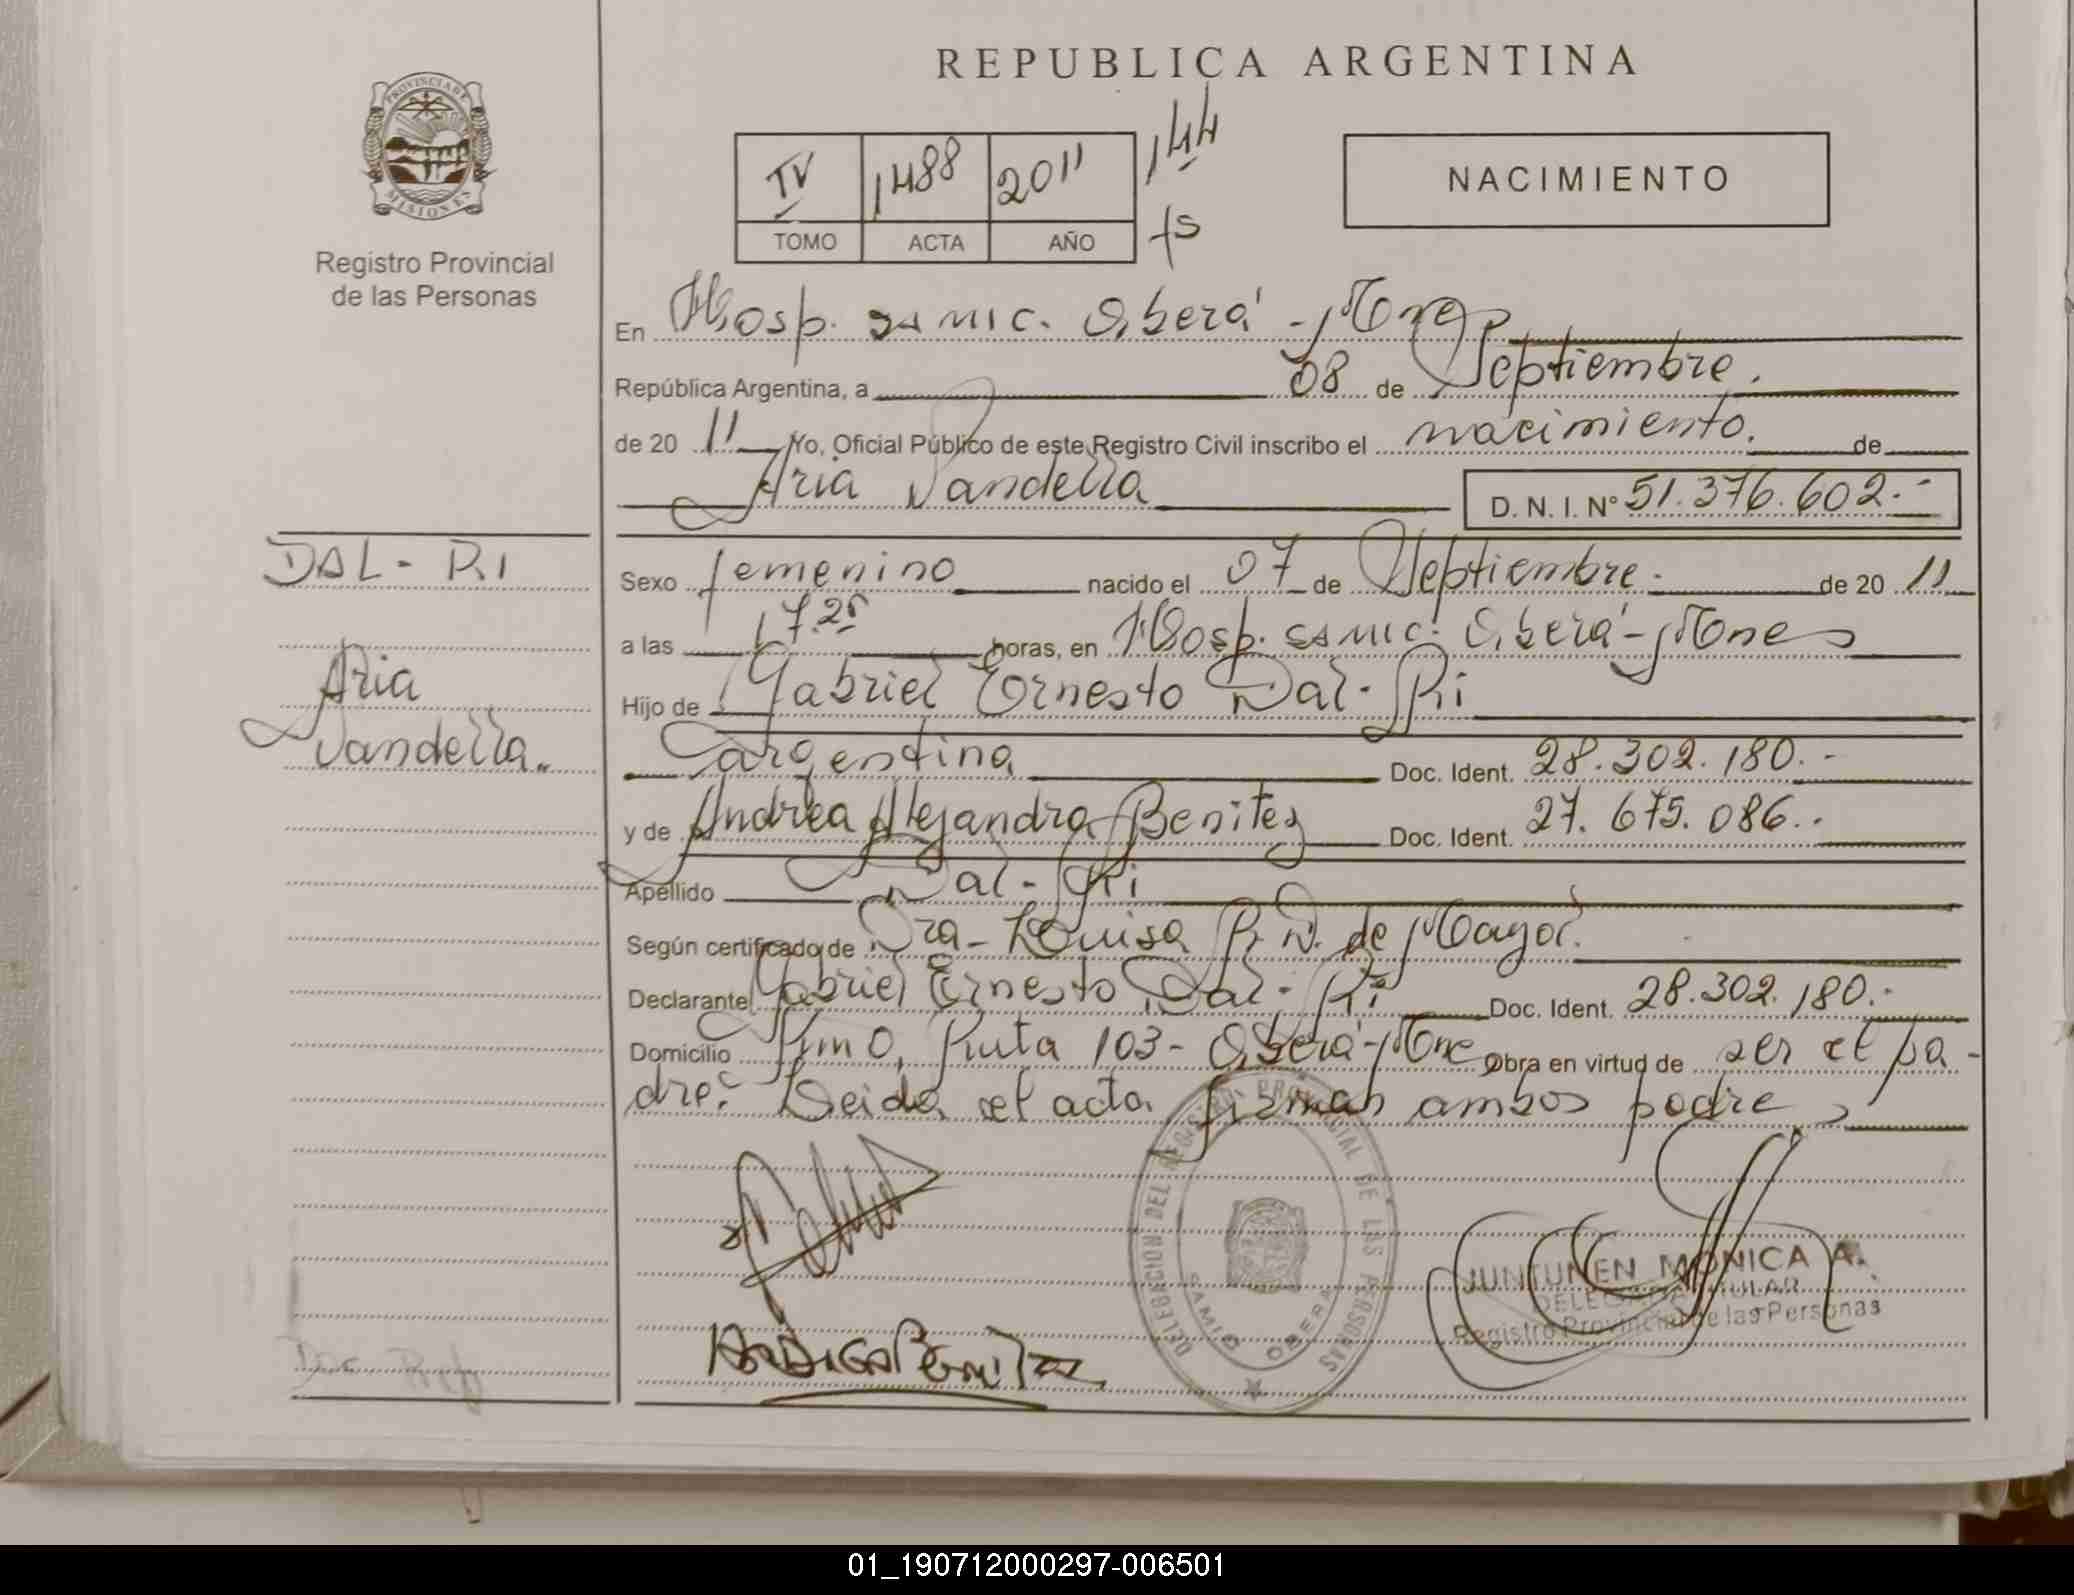 REPUBLICA ARGENTINA
PROVINCIA DE MISIONES
Registro Provincial
de las Personas
IV 1488 2011 144
TOMO ACTA AÑO fs
NACIMIENTO
En Hosp. SAMIC. Oberá - Mnes
República Argentina, a 08 de Septiembre.
de 20 11 Yo, Oficial Público de este Registro Civil inscribo el nacimiento. de
Aria D. N. I. Nº 51.376.602.-
DAL - RI
Aria
Sexo femenino nacido el 07 de Septiembre. de 20 11
a las 17.25 horas, en Hosp. SAMIC. Oberá - Mnes
Hijo de Gabriel Ernesto Dal-Ri
argentina Doc. Ident. 28.302.180.-
y de Andrea Alejandra Benitez Doc. Ident. 27.675.086.-
Apellido Dal-Ri
Según certificado de Dra- Louisa R. D. de Mayor.
Declarante Gabriel Ernesto Dal-Ri Doc. Ident. 28.302.180.-
Domicilio Km 0, Ruta 103- Oberá-Mnes Obra en virtud de ser el pa-
dre. Leida el acta firman ambos padres
DELEGACION DEL REGISTRO PROVINCIAL DE LAS PERSONAS
SAMIC OBERA
JUNTUNEN MONICA A.
DELEGADA TITULAR
Registro Provincial de las Personas
ANDREA BENITEZ
01_190712000297-006501